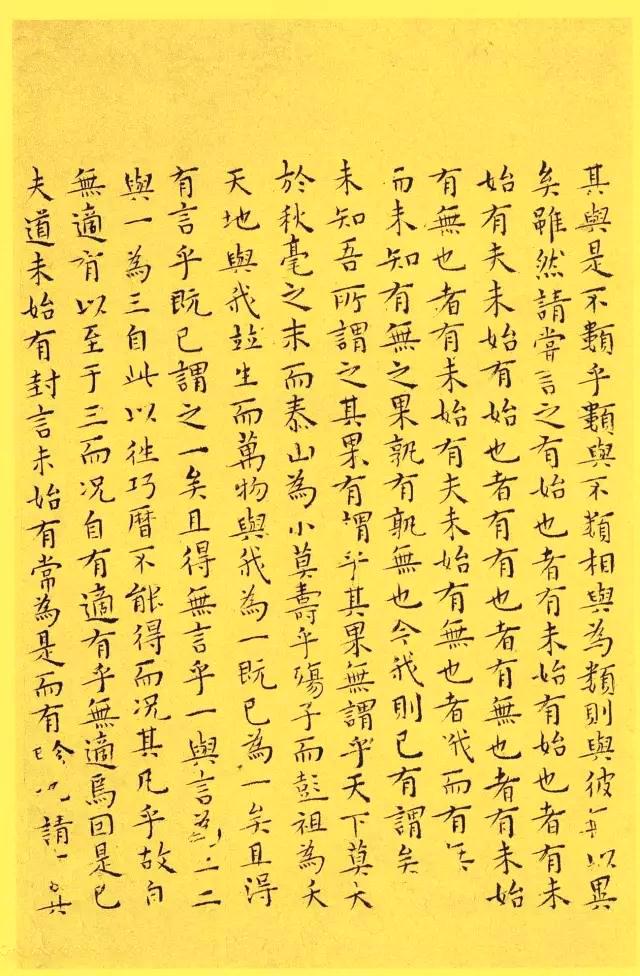 其與是不類乎類與不類相與為類則與彼無以異
矣雖然請嘗言之有始也者有未始有始也者有未
始有夫未始有始也者有有也者有無也者有未始
有無也者有未始有夫未始有無也者俄而有
而未知有無之果孰有孰無也今我則已有謂矣
未知吾所謂之其果有謂乎其果無謂乎天下莫大
於秋毫之末而泰山為小莫壽乎殤子而彭祖為夭
天地與我竝生而萬物與我為一既已為一矣且得
有言乎既已謂之一矣且得無言乎一與言為二二
與一為三自此以往巧曆不能得而况其凡乎故自
無適有以至于三而况自有適有乎無適焉因是已
夫道未始有封言未始有常為是而有畛也請其